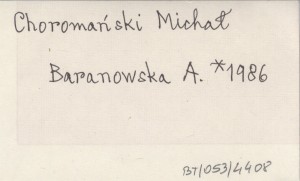 Choromański Michał
Baranowska A. *1986
BT/053/4408